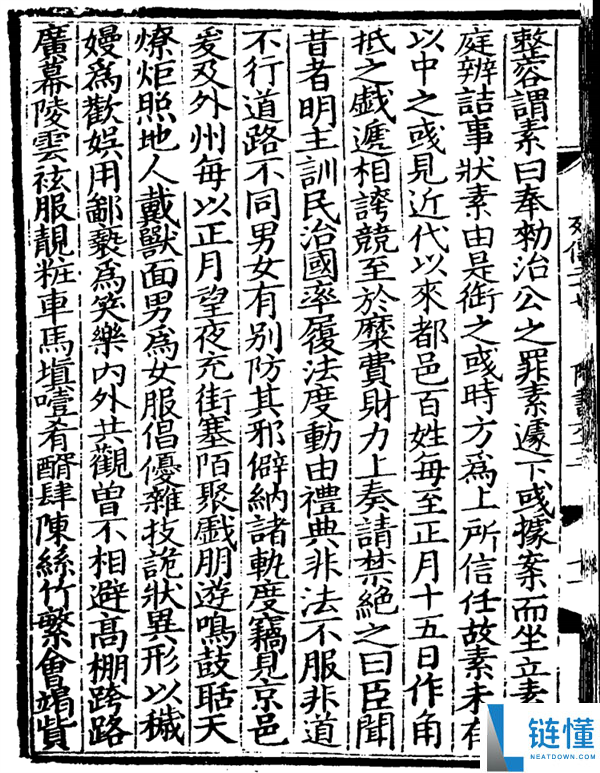 整容謂素曰奉勑治公之罪素遽下彧據案而坐立素
庭辨詰事狀素由是銜之彧時方爲上所信任故素未有
以中之彧見近代以來都邑百姓每至正月十五日作角
抵之戲遞相誇競至於糜費財力上奏請禁絕之曰臣聞
昔者明主訓民治國率履法度動由禮典非法不服非道
不行道路不同男女有別防其邪僻納諸軌度竊見京邑
爰及外州每以正月望夜充街塞陌聚戲朋遊鳴鼓聒天
燎炬照地人戴獸面男爲女服倡優雜技詭狀異形以穢
嫚爲歡娛用鄙褻爲笑樂內外共觀曾不相避高棚跨路
廣幕陵雲袨服靚粧車馬填噎肴醑肆陳絲竹繁會竭貲
链懂
NEATDOWN.COM